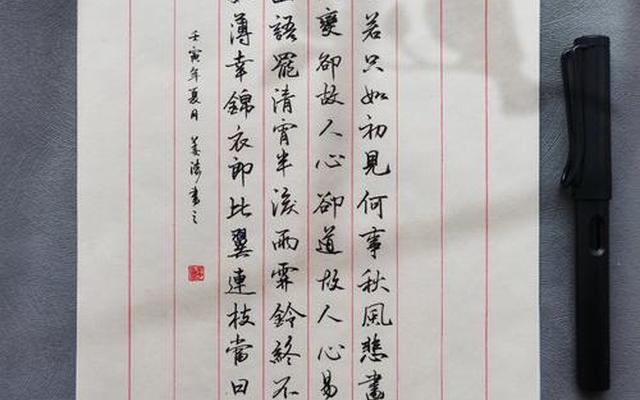 若只如初見何事秋風悲畫
變卻故人心卻道故人心易
語罷清宵半淚雨霖鈴終不
薄幸錦衣郎比翼連枝當日
壬寅年夏月 姜濤書之